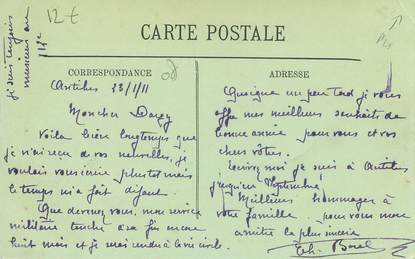 12 €
je suis toujours
musicien au
11e
CARTE POSTALE
CORRESPONDANCE
ADRESSE
Antibes 23/1/11
Mon cher Darey
Voila bien longtemps que
je n'ai recu de vos nouvelles, je
voulais vous ecrire plus tot mais
le temps m'a fait defaut.
Que devenez vous, mon service
militaire touche a sa fin encore
huit mois et je serai rendu à la vie civile.
Quoique un peu tard je vous
offre mes meilleurs souhaits de
bonne année pour vous et vos
chers vôtres.
Ecrivez moi je suis à Antibes
jusqu'en Septembre.
Meilleurs hommages à
votre famille pour vous mon
amitié la plus sincère
Th. Borel